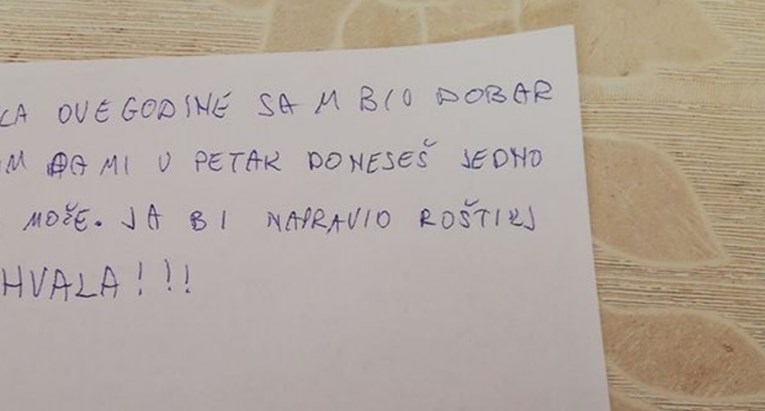 OVE GODINE SAM BIO DOBAR
DA MI U PETAK DONESEŠ JEDNO
MOŽE. JA BI NAPRAVIO ROŠTILJ
HVALA!!!